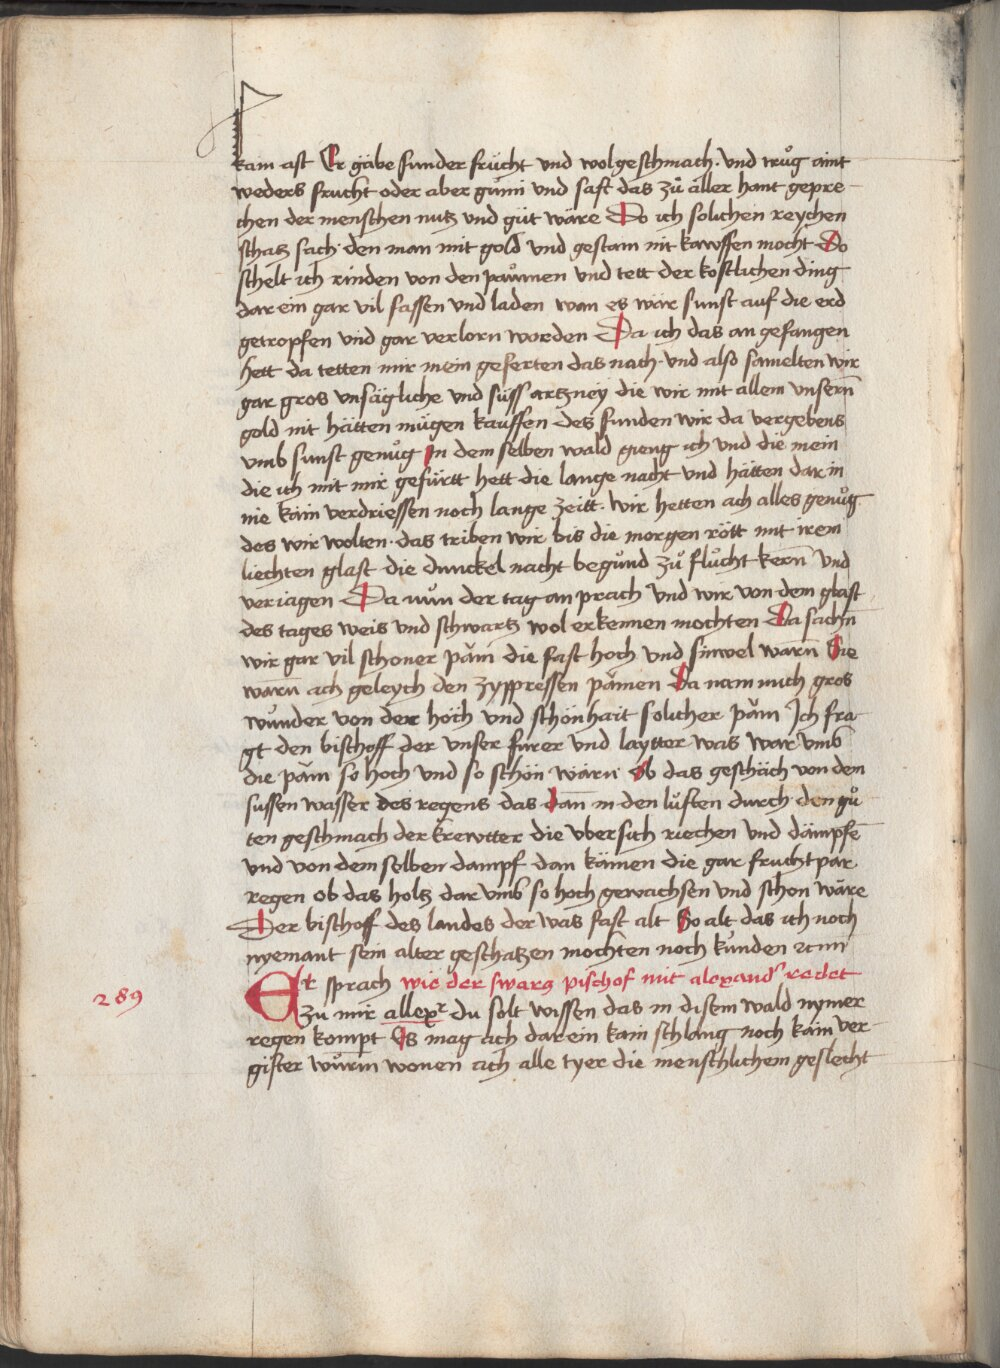 kain ast Er gäbe sunder frücht und wolgeschmach · und trůg aint
weders frucht oder aber gumi und saft das zů aller hant gepre
chen der menschen nutz und güt wäre Do ich solichen reychen
schatz sach den man mit gold und gestain nit kawffen mocht Do
schelt ich rinden von den paŭmen und tett der kostlichen ding
darein gar vil fassen und laden wan es wär sunst auf die erd
getropfen und gar verlorn worden Da ich das an gefangen
hett da tetten mir mein geferten das nach · und also samelten wir
gar gros unsägliche und süss artzney die wir mit allem unsern̄
gold nit hätten mügen kauffen des funden wir da vergebens
umb sunst genůg In dem selben wald gieng ich und die mein
die ich mit mir gefürtt hett die lange nacht und hätten dar in
nie kain verdriessen noch lange zeitt · wir hetten ach alles genůg
des wir wolten · das triben wir bis die morgen rött mit irem
liechten glast die dunckel nacht begůnd zů flůcht kern̄ und
veriagen Da nŭn der tag an prach und wir von dem glast
des tages weis und schwartz wol erkennen mochten Da sachn̄
wir gar vil schoner päm die fast hoch und sinwel warn̄ Sie
warn̄ ach geleych den zyppressen pämen Da nam mich gros
wunder von der höch und schönhait solicher päm Ich fra
gt den bischoff der unser furer und laytter was war umb
die päm so hoch und so schön wärn Ob das geschäch von dem
sussen wasser des regens das dan̄ in den lüften durch den gů
ten geschmach der krewtter die ubersich riechen und dämpfē
und von dem selben dampf dan kämen die gar fruchtpar
regen ob das holtz dar umb so hoch gewachsen und schon wäre
Der bischoff des landes der was fast alt So alt das ich noch
nyemant sein alter geschatzen mochten noch kunden
Er sprach wie der swarz pischof mit alexandr redet
289
zů mir allexr du solt wissen das in disem wald nymer
regen kompt Es mag ach darein kain schlang noch kain ver
gifter wŭrm wonen ach alle tyer die menschlichem geslecht